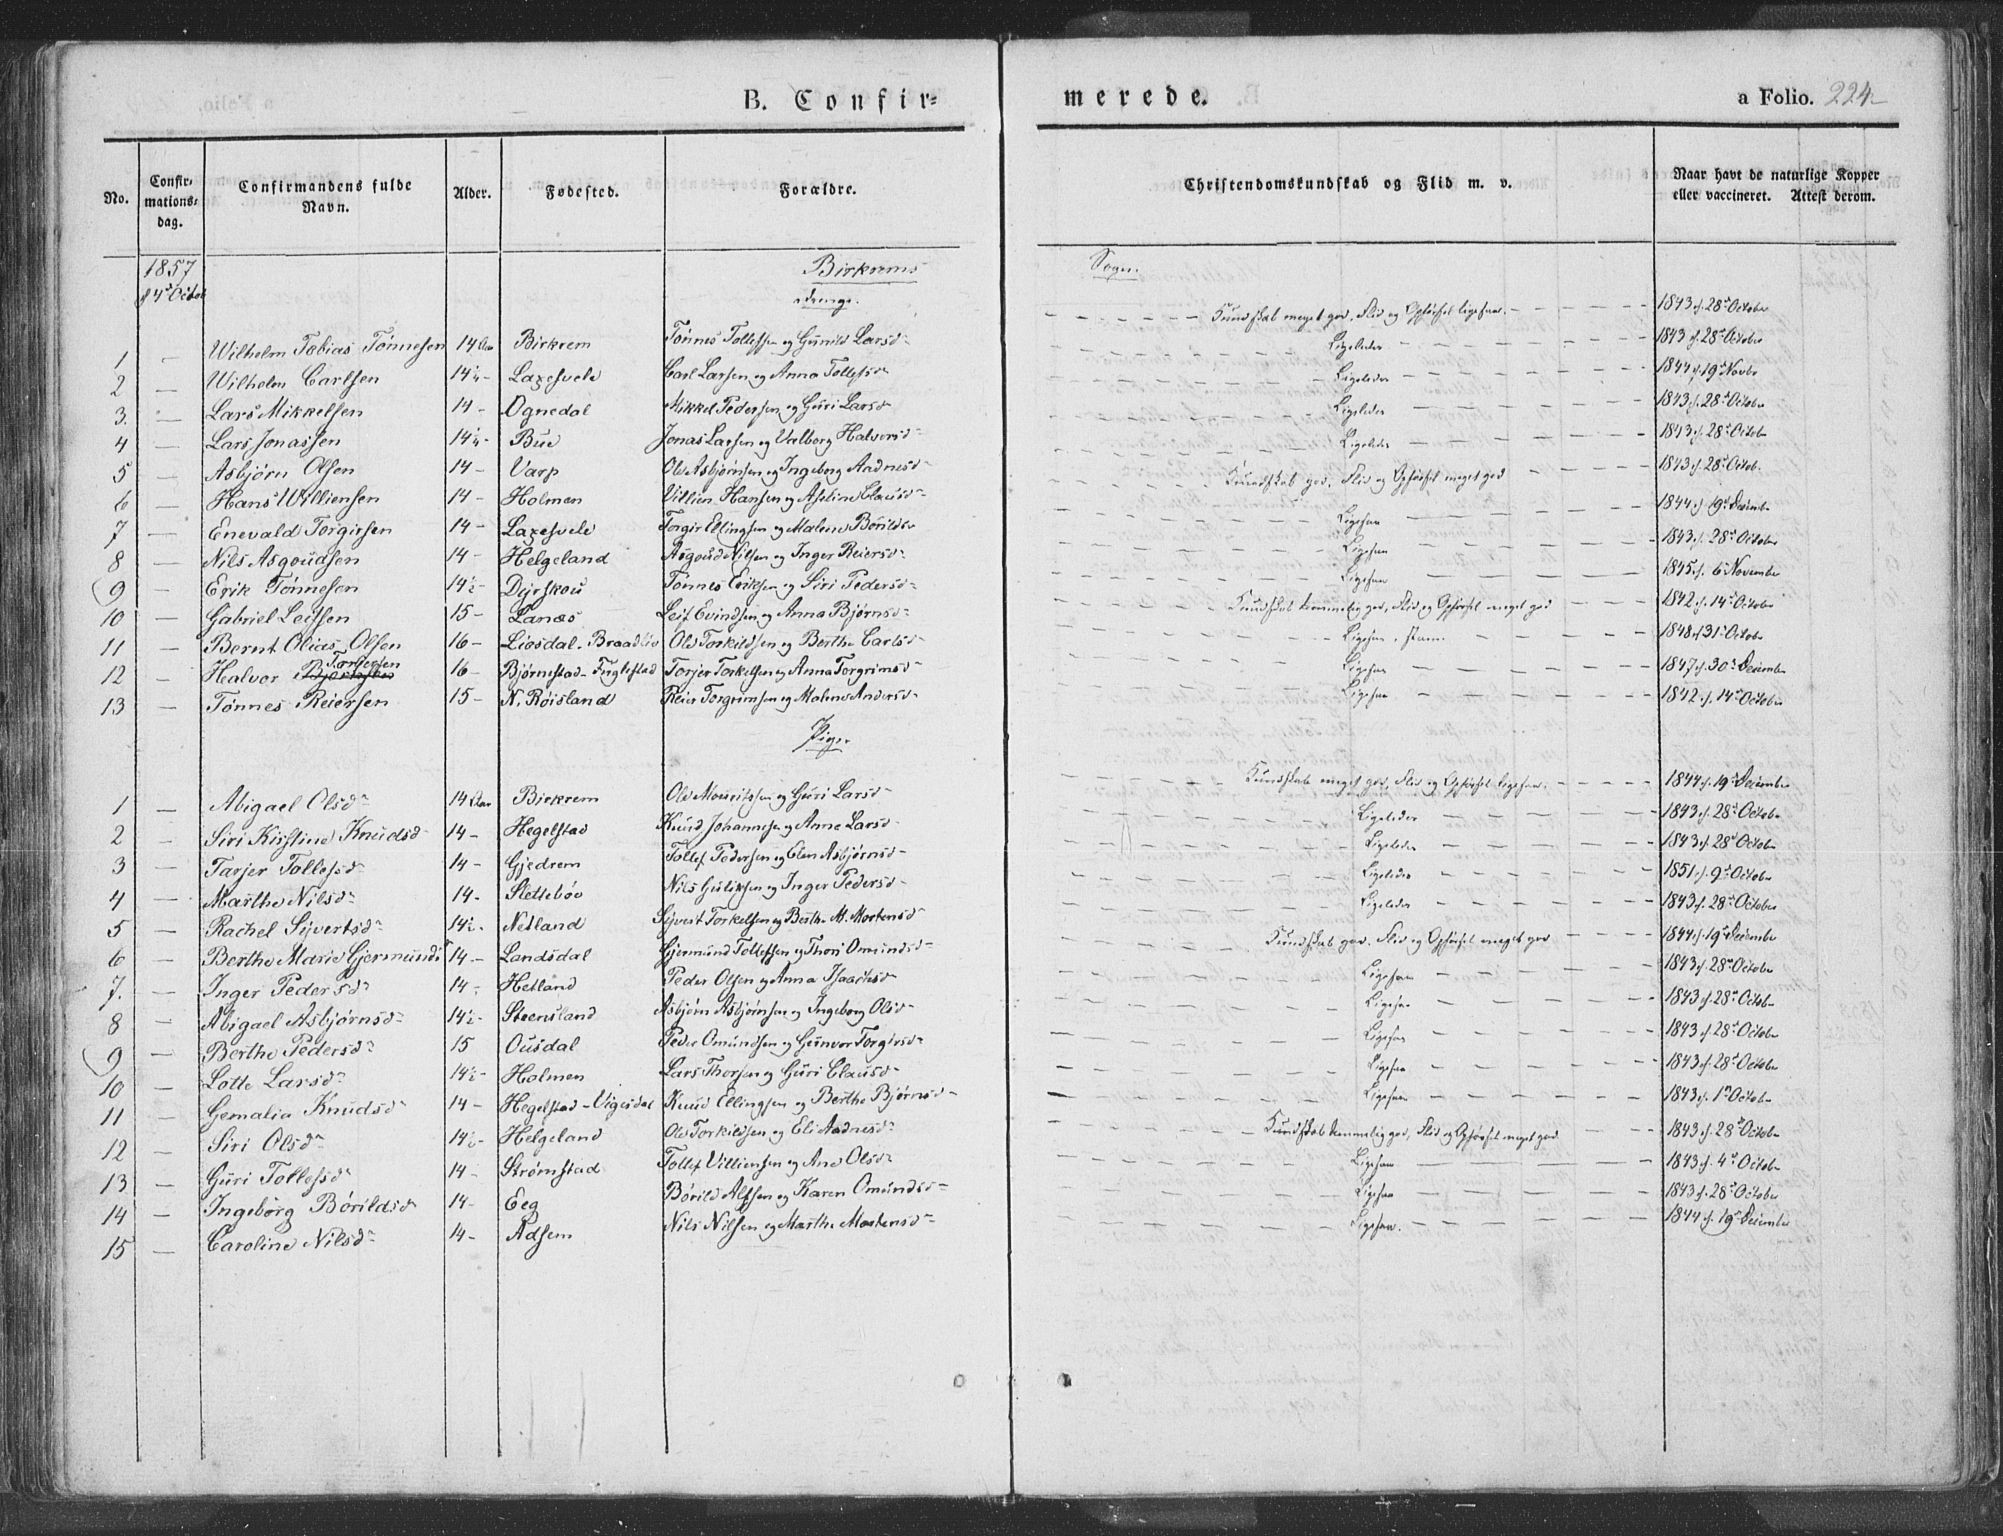 B. Confir=
merede.
a Folio. 224
No.
Confir-
mations-
dag.
Confirmandens fulde
Navn.
Alder.
Fødested.
Forældre.
Christendomskundskab og Flid m. v.
Naar havt de naturlige Kopper
eller vaccineret. Attest derom.
1857
d 4de Octob
Birkrems
Sogn.
drenge.
1 — Wilhelm Tobias Tønnesen 14 Aar Birkrem Tønnes Tollefsen og Gunild Larsd Kundskab meget god. Flid og Opførsel ligesaa. 1843 d. 28de October
2 — Wilhelm Carlsen 14¼ - Laxesvele Carl Larsen og Anna Tollefsd Ligeledes 1843 d. 28de October
3. — Lars Mikkelsen 14 - Ognedal Mikkel Pedersen og Guri Larsd Ligeledes 1844 d. 19de Novbr
4 — Lars Jonassen 14¼ - Bue Jonas Larsen og Valborg Halvorsd Ligeledes 1843 d. 28de October
5 — Asbjørn Olsen 14 - Varp Ole Asbjørnsen og Ingeborg Aadnesd Ligeledes 1843 d. 28de Octob
6 — Hans Williensen 14 - Holmen Villien Hansen og Aseline Clausd Kundskab god. Flid og Opførsel meget god 1843 d. 28de Octob.
7 — Enevald Torgirsen 14 - Laxesvele Torgir Ellingsen og Malene Børildsd Ligesaa 1844 d. 19de Decembr
8 — Nils Asgoudsen 14 - Helgeland Asgoud Nilsen og Inger Reiersd Ligesaa 1843 d. 28de October
9 — Erik Tønnesen 14½ - Dyrskou Tønnes Eriksen og Siri Pedersd Ligesaa 1845 d. 6 November
10 — Gabriel Leifsen 15 - Lanæs Leif Evindsen og Anna Bjørnsd Kundskab temmelig god, Flid og Opførsel meget god 1842 d. 14de October
11 — Bernt Olias Olsen 16 - Liosdal - Braadlie Ole Torkildsen og Berthe Carlsd Ligesaa 1848 d 31te Octob
12 — Halvor Torjersen 16 - Bjørnestad - Fuglestad Torjer Torkelsen og Anna Torgrimsd Ligesaa 1847 d. 30te December
13 — Tønnes Reiersen 15 - N. Røisland Reier Torgrimsen og Malene Andersd Ligesaa 1842 d. 14de October
Piger
1 — Abigael Olsd 14 Aar Birkrem Ole Mouritzsen og Guri Larsd Kundskab meget god, Flid og Opførsel ligesaa. 1844 d. 19de December
2 — Siri Kirstine Knudsd 14 - Hegelstad Knud Johannesen og Anne Larsd Ligeledes 1843 d. 28de October
3 — Tarjer Tollefsd 14 - Gjedrem Tollef Pedersen og Elen Asbjørnsd Ligeledes 1843 d. 28de October
4 — Marthe Nilsd 14. Slettebøe Nils Guliksen og Inger Pedersd Ligeledes 1851 d. 9de October
5 — Rachel Sivertsd 14½ - Netland Sivert Torkelsen og Berthe M. Mortensd Ligeledes 1843 d. 28de October
6 — Berthe Marie Gjermunds 14 - Landsdal Gjermund Tollefsen og Thori Omundsd Kundskab god. Flid og Opførsel meget god 1844 d. 19de December
7. — Inger Pedersd 14 - Hetland Peder Olsen og Anna Isaachsd Ligesaa 1843 d. 28de October
8 — Abigael Asbjørnsd 14½ - Steensland Asbjørn Asbjørnsen og Ingeborg Olsd Ligesaa 1843 d. 28de October
9 — Berthe Pedersd 15 Ousdal Peder Omundsen og Gunvor Torgirsd Ligesaa 1843 d. 28de October
10 — Lotte Larsd 14½ - Holmen Lars Thorsen og Guri Clausd Ligesaa 1843 d. 28de October
11 — Gemalia Knudsd 14 - Hegelstad - Vigesdal Knud Ellingsen og Berthe Bjørnsd Ligesaa 1843 d. 1te October
12 — Siri Olsd 14½ - Helgeland Ole Torkildsen og Eli Aadnesd Kundskab temmelig god, Flid og Opførsel meget god 1843 d. 28de October
13 — Guri Tollefsd 14 - Strømstad Tollef Villiensen og Ane Olsd Ligesaa 1843 d. 4de October
14 — Ingeborg Børildsd 14 - Eeg Børild Alfsen og Karen Omundsd Ligesaa 1843 d. 28de October
15 — Caroline Nilsd 14 - Adsem Nils Nilsen og Marthe Mortensd Ligesaa. 1844 d. 19de December